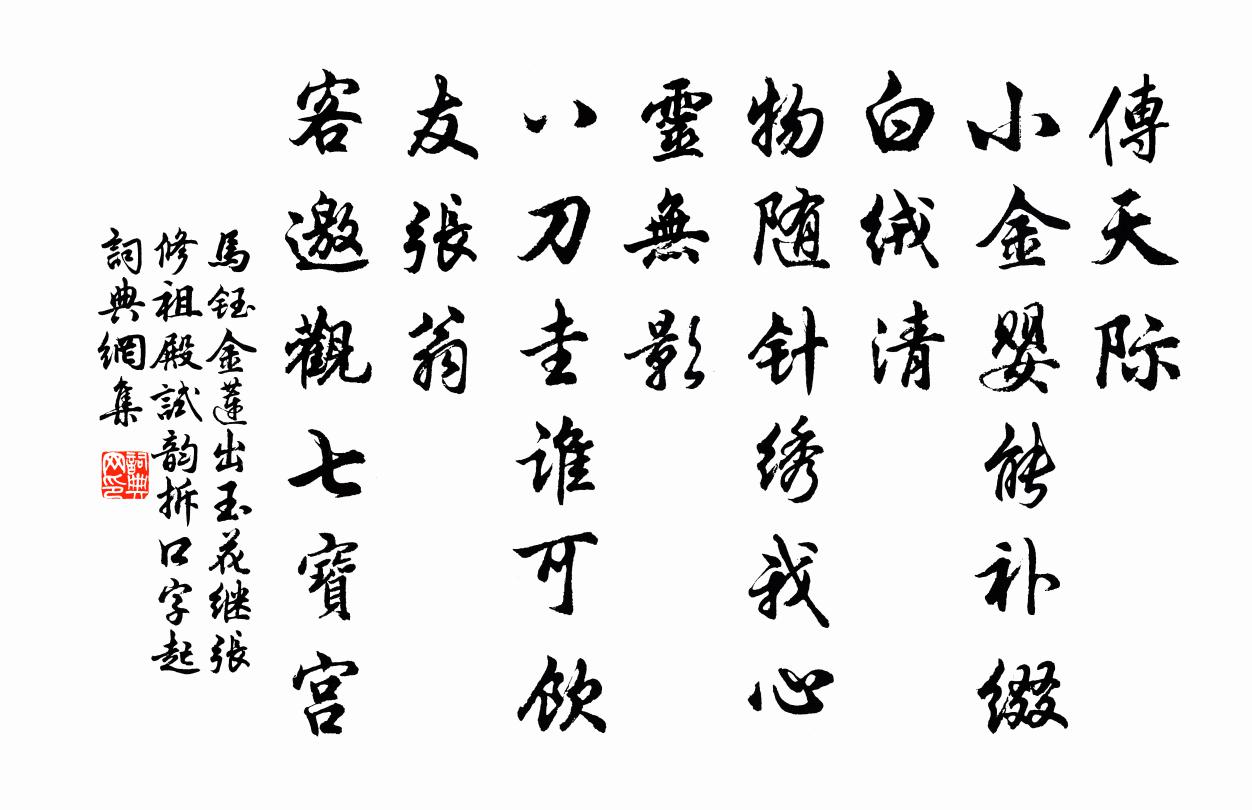 傳天际
小金婴能补缀
白绒清
物随针绣我心
靈無影
八刀圭谁可饮
友張翁
客邀觀七寶宮
馬钰金蓮出玉花继張
修祖殿試韵拆口字起
詞典網集
詞典网印